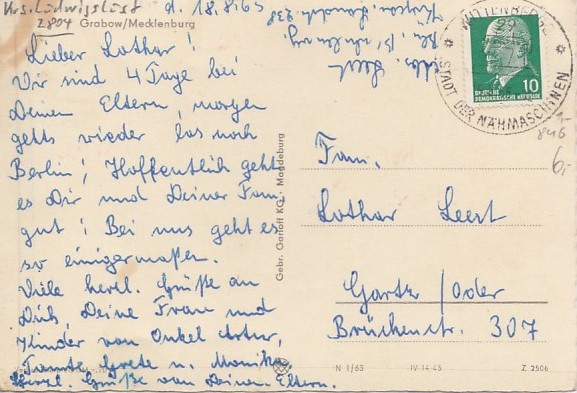 Krs. Ludwigslust d. 18.8.63
2804 Grabow/Mecklenburg
Lieber Lothar!
Wir sind 4 Tage bei
Deinen Eltern, morgen
gehts wieder los nach
Berlin! Hoffentlich geht
es Dir und Deiner Fam.
gut! Bei uns geht es
so einigermaßen.
Viele herzl. Grüße an
Dich, Deine Frau und
Kinder von Onkel Artur,
Tante Grete u. Monika
Herzl. Grüße von Deinen Eltern.
Abs. Leest
Gebr. Garloff KG., Magdeburg
WITTENBERGE
STADT DER NÄHMASCHINEN
10
DEUTSCHE
DEMOKRATISCHE REPUBLIK
846
6,-
Fam.
Lothar Leest
Gartz/Oder
Brückenstr. 307
N 1/63 IV-14-45 Z 2506